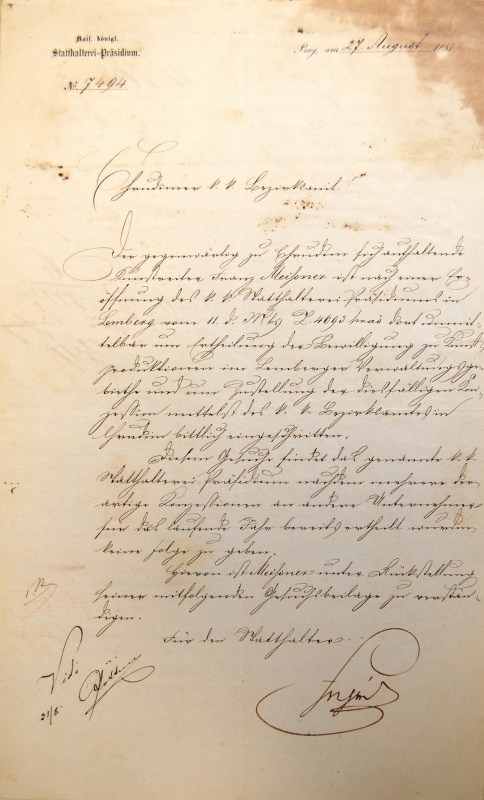 Kais. königl.
Statthalterei-Präsidium.
Prag, am 27 August 18
№. 7494
Chrudimer k. k. Bezirksamt
Der gegenwärtig zu Chrudim sich aufhaltende
Kunstreiter Franz Meißner ist nach einer Er-
öffnung des k. k. Statthalterei Präsidiums in
Lemberg vom 11. d. Mts Z. 4693 dort unmit-
telbar um Ertheilung der Bewilligung zu Kunst-
produktionen im Lemberger Verwaltungsge-
biethe und um Zustellung der diesfälligen Kon-
zession mittelst des k. k. Bezirksamtes in
Chrudim bittlich eingeschritten.
Diesem Gesuche findet das genannte k. k.
Statthalterei Präsidium nachdem mehrere der-
artige Konzessionen an andere Unternehmer
für das laufende Jahr bereits ertheilt wurden,
keine Folge zu geben.
Hievon ist Meißner unter Rückstellung
seiner mitfolgenden Gesuchsbeilage zu verstän-
digen.
Für den Statthalter
Vidi
31/8